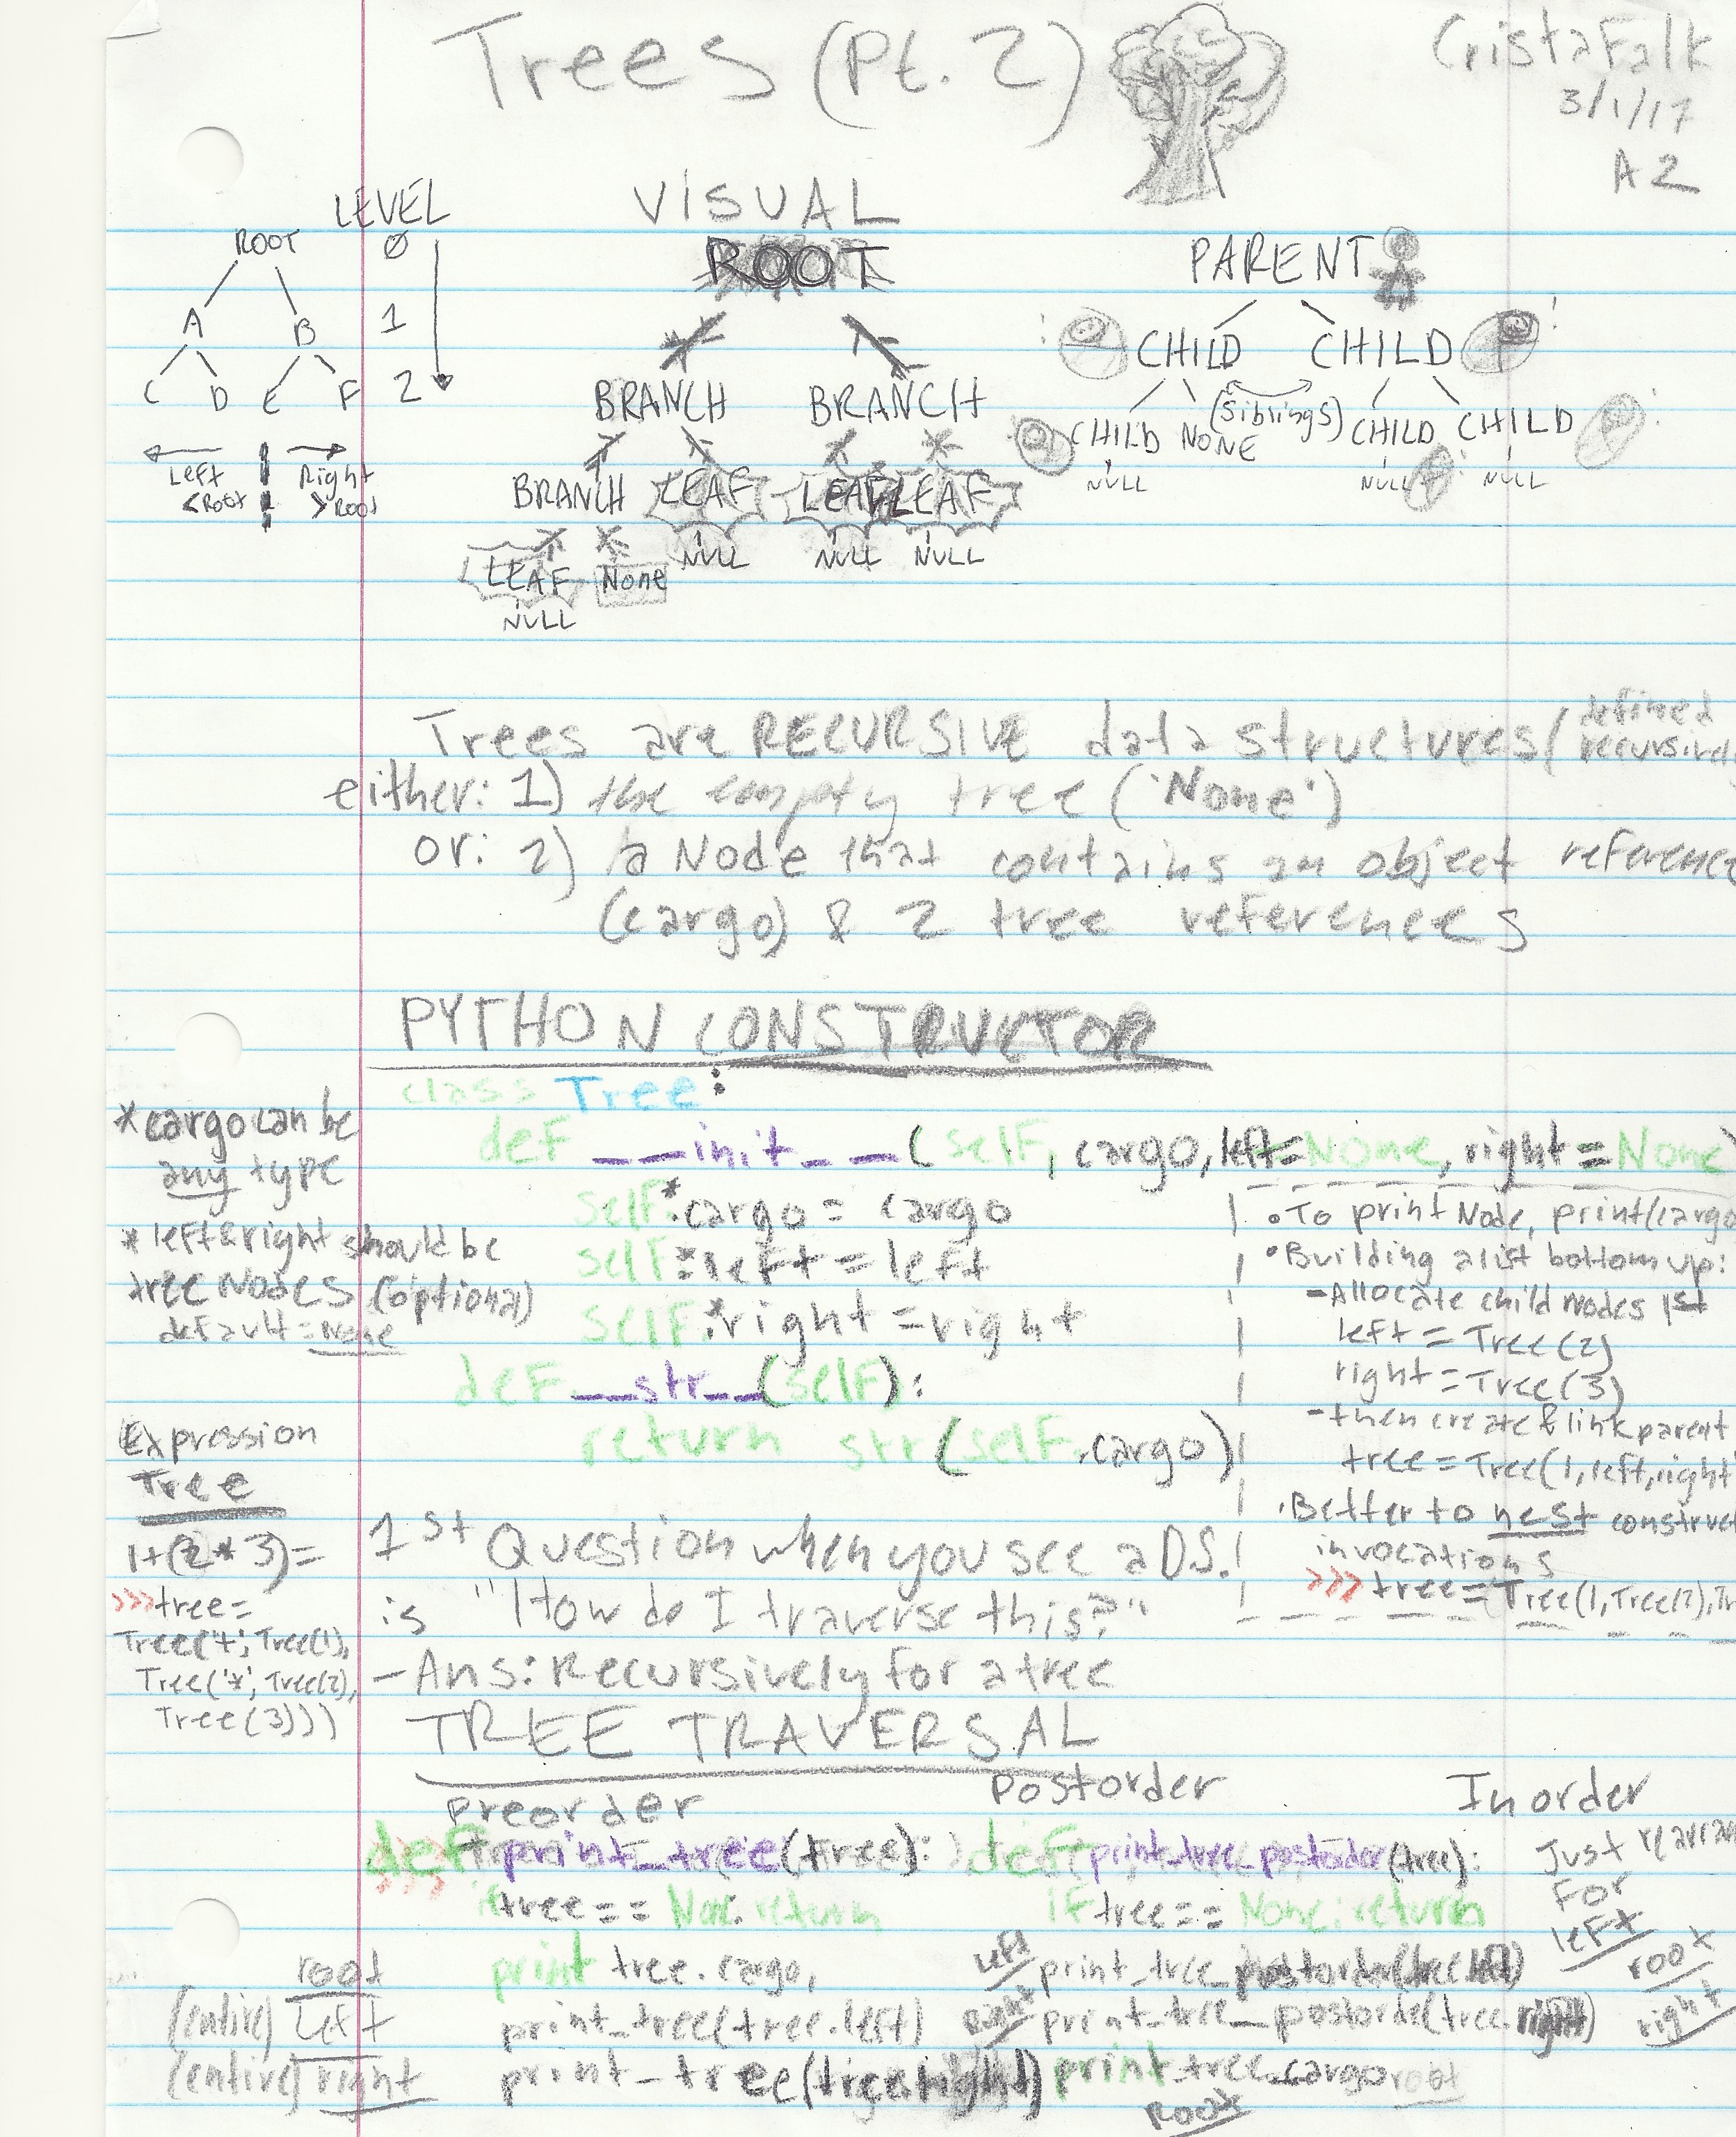 Trees (Pt. 2)
Crista Falk
3/1/17
A2
LEVEL
ROOT 0
A B 1
C D E F 2
Left
<Root
Right
>Root
VISUAL
ROOT
BRANCH BRANCH
BRANCH LEAF LEAF LEAF
NULL NULL NULL
LEAF None
NULL
PARENT
CHILD CHILD
(siblings)
CHILD NONE CHILD CHILD
NULL NULL NULL
Trees are RECURSIVE data structures (defined
either: 1) the empty tree ('None')
or: 2) a Node that contains an object reference
(cargo) & 2 tree references
PYTHON CONSTRUCTOR
class Tree:
def __init__(self, cargo, left=None, right=None)
self.cargo = cargo
self.left = left
self.right = right
def __str__(self):
return str(self.cargo)
*cargo can be
any type
*left & right should be
tree Nodes (optional)
default = None
•To print Node, print(cargo
•Building a list bottom up:
-Allocate child nodes 1st
left = Tree(2)
right = Tree(3)
-then create & link parent
tree = Tree(1, left, right
•Better to nest construct
invocations
>>> tree = Tree(1, Tree(2), Tr
Expression
Tree
1+(2*3)=
>>>tree=
Tree('+', Tree(1),
Tree('*', Tree(2),
Tree(3)))
1st Question when you see a DS.
is "How do I traverse this?"
-Ans: Recursively for a tree
TREE TRAVERSAL
preorder
def print_tree(tree):
if tree == None: return
print tree.cargo,
print_tree(tree.left)
print_tree(tree.right)
root
(entire) Left
(entire) right
Postorder
def print_tree_postorder(tree):
if tree == None: return
left print_tree_postorder(tree.left)
Right print_tree_postorder(tree.right)
print tree.cargo root
Root
In order
Just
for
left
root
right